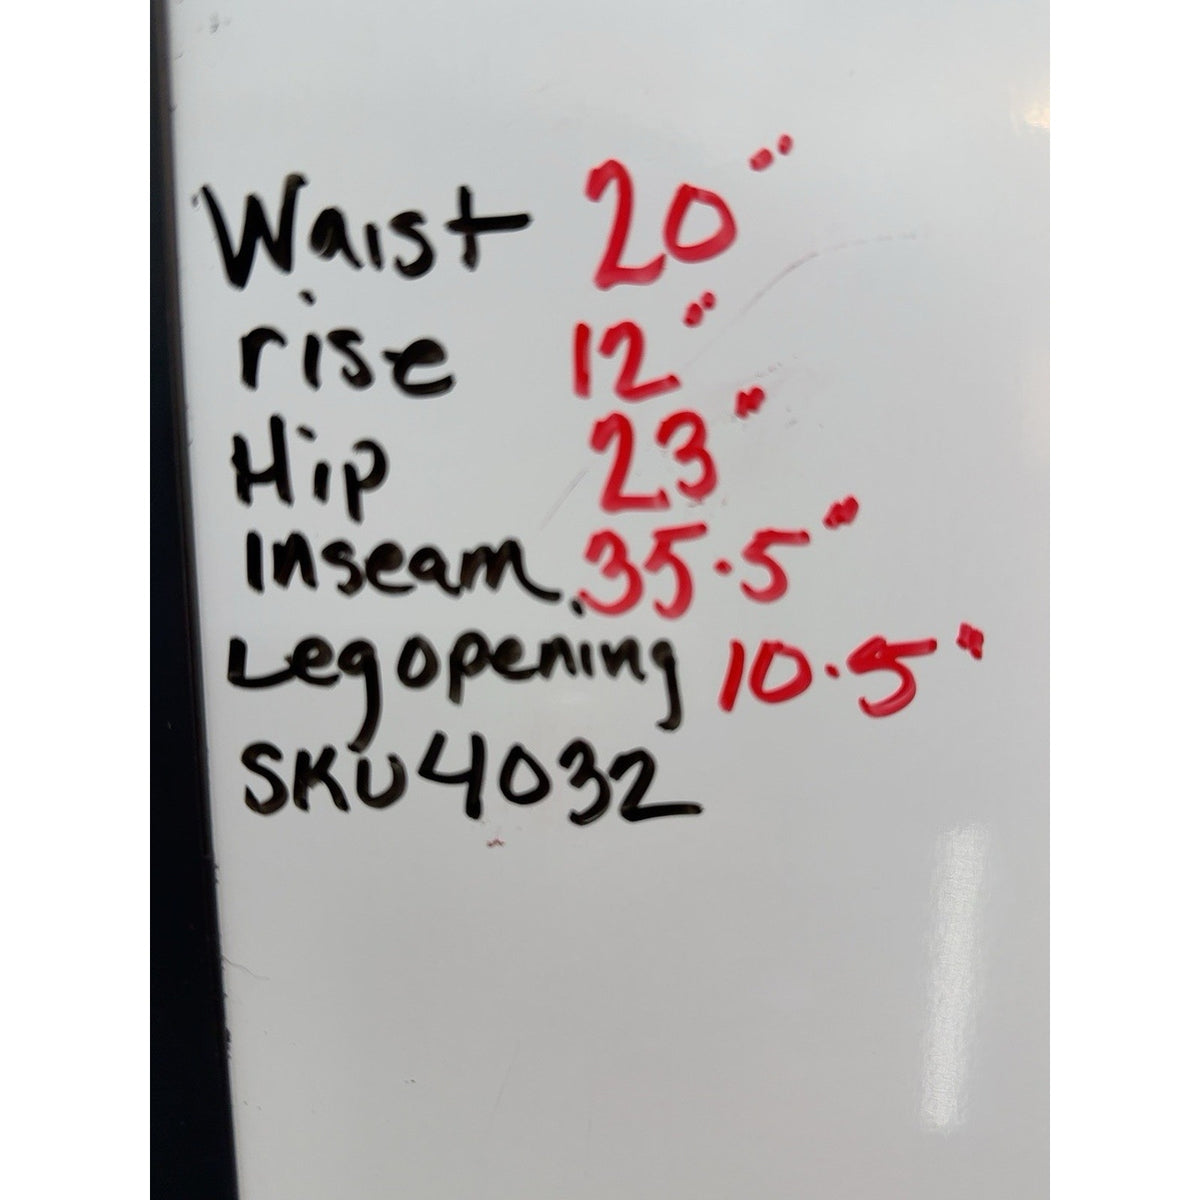 Waist 20"
rise 12"
Hip 23"
Inseam 35.5"
Leg opening 10.5"
SKU 4032